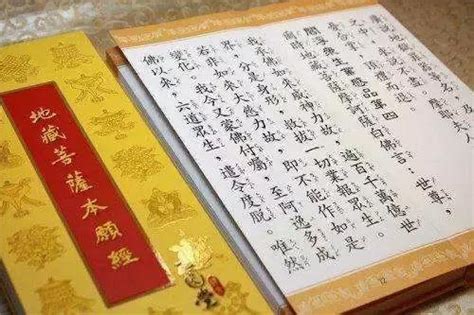 地藏菩薩本願經
廣說地獄
閻浮眾生業感品第四
爾時地藏菩薩摩訶薩白佛言：世尊，
我承佛如來威神力故，遍百千萬億世
界，分是身形，救拔一切業報眾生。
若非如來大慈力故，即不能作如是
變化。我今又蒙佛付囑，至阿逸多成
佛以來，六道眾生，遣令度脫。唯然
12